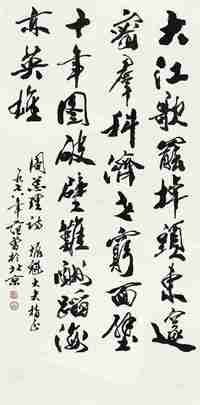 大江歌罷掉頭東邃
密群科濟世窮面壁
十年圖破壁難酬蹈海
亦英雄
周總理詩
於北京